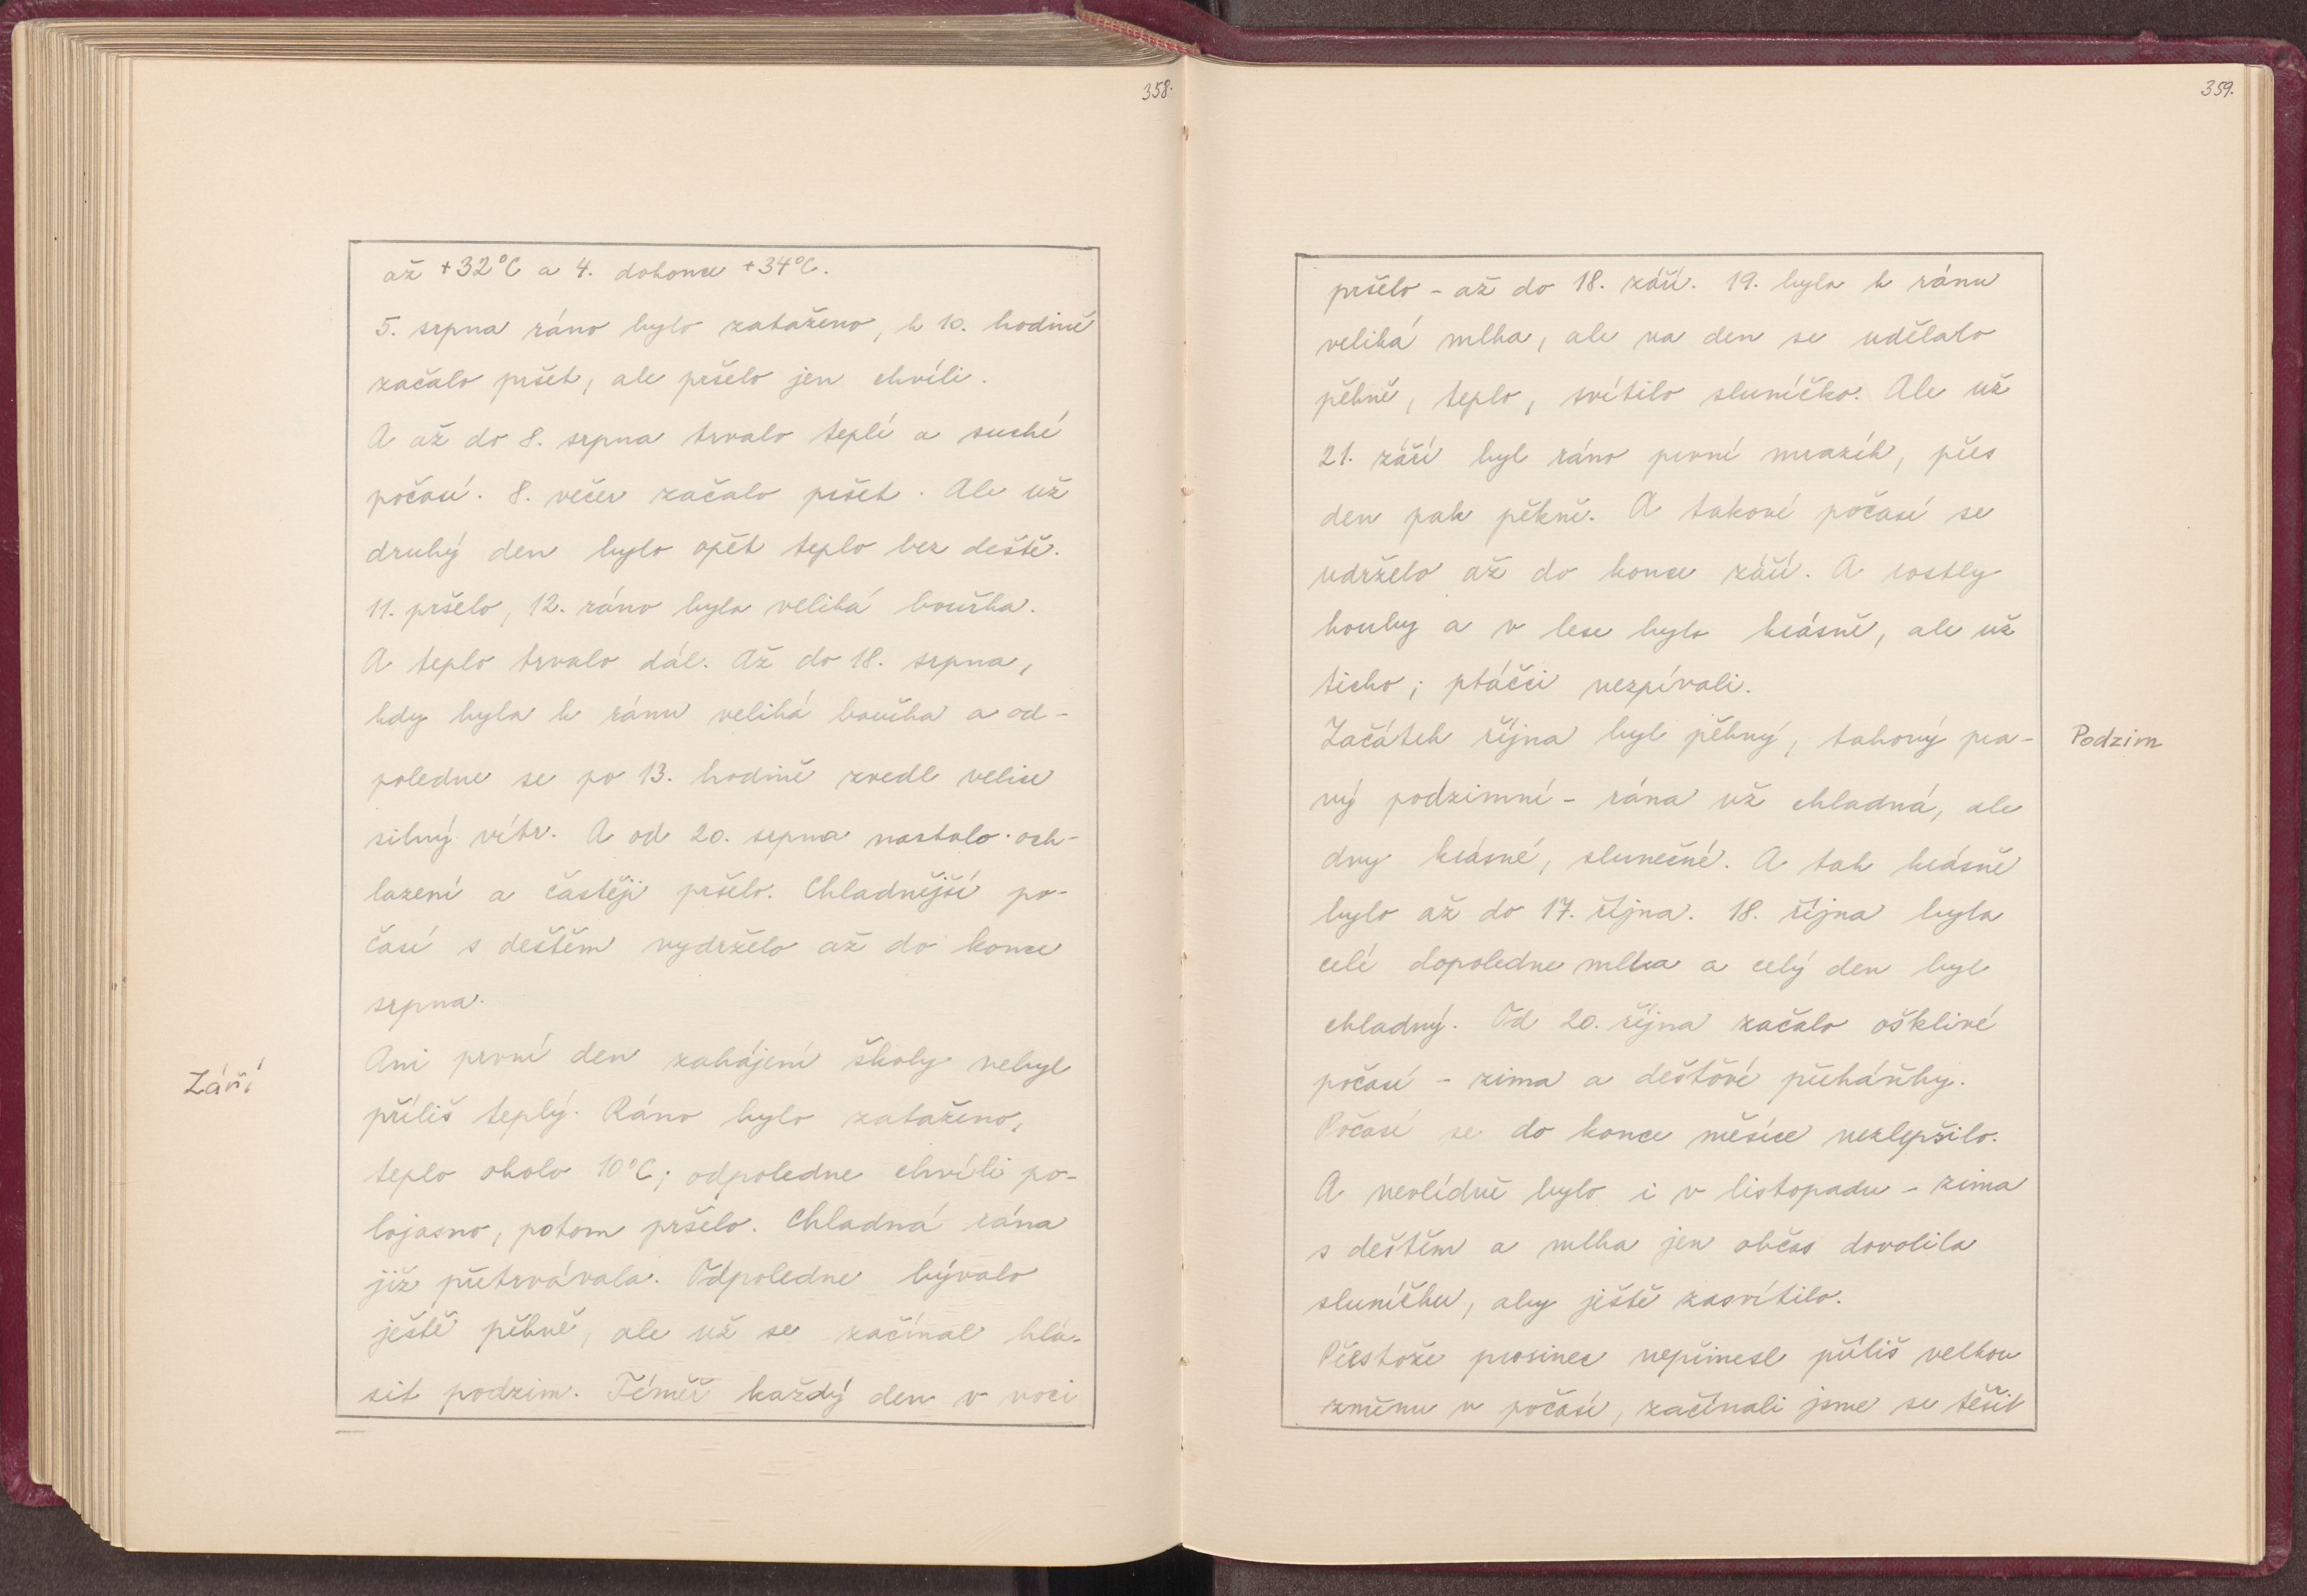 358.
až +32°C a 4. dokonce +34°C.
5. srpna ráno bylo zataženo, k 10. hodině
začalo pršet, ale pršelo jen chvíli.
A až do 8. srpna trvalo teplé a suché
počasí. 8. večer začalo pršet. Ale už
druhý den bylo opět teplo bez deště.
11. pršelo, 12. ráno byla veliká bouřka.
A teplo trvalo dál. Až do 18. srpna,
kdy byla k ránu veliká bouřka a od-
poledne se po 13. hodině zvedl velice
silný vítr. A od 20. srpna nastalo och-
lazení a častěji pršelo. Chladnější po-
časí s deštěm vydrželo až do konce
srpna.
Září
Ani první den zahájení školy nebyl
příliš teplý. Ráno bylo zataženo,
teplo okolo 10°C; odpoledne chvíli po-
lojasno, potom pršelo. Chladná rána
již přetrvávala. Odpoledne bývalo
ještě pěkně, ale už se začínal hlá-
sit podzim. Téměř každý den v noci
359.
pršelo - až do 18. září. 19. byla k ránu
veliká mlha, ale na den se udělalo
pěkně, teplo, svítilo sluníčko. Ale už
21. září byl ráno první mrazík, přes
den pak pěkně. A takové počasí se
udrželo až do konce září. A rostly
houby a v lese bylo krásně, ale už
ticho; ptáčci nezpívali.
Začátek října byl pěkný, takový pra-
Podzim
vý podzimní - rána už chladná, ale
dny krásné, slunečné. A tak krásně
bylo až do 17. října. 18. října byla
celé dopoledne mlha a celý den byl
chladný. Od 20. října začalo ošklivé
počasí - zima a dešťové přeháňky.
Počasí se do konce měsíce nezlepšilo.
A nevlídně bylo i v listopadu - zima
s deštěm a mlha jen občas dovolila
sluníčku, aby ještě zasvítilo.
Přestože prosinec nepřinesl příliš velkou
změnu v počasí, začínali jsme se těšit